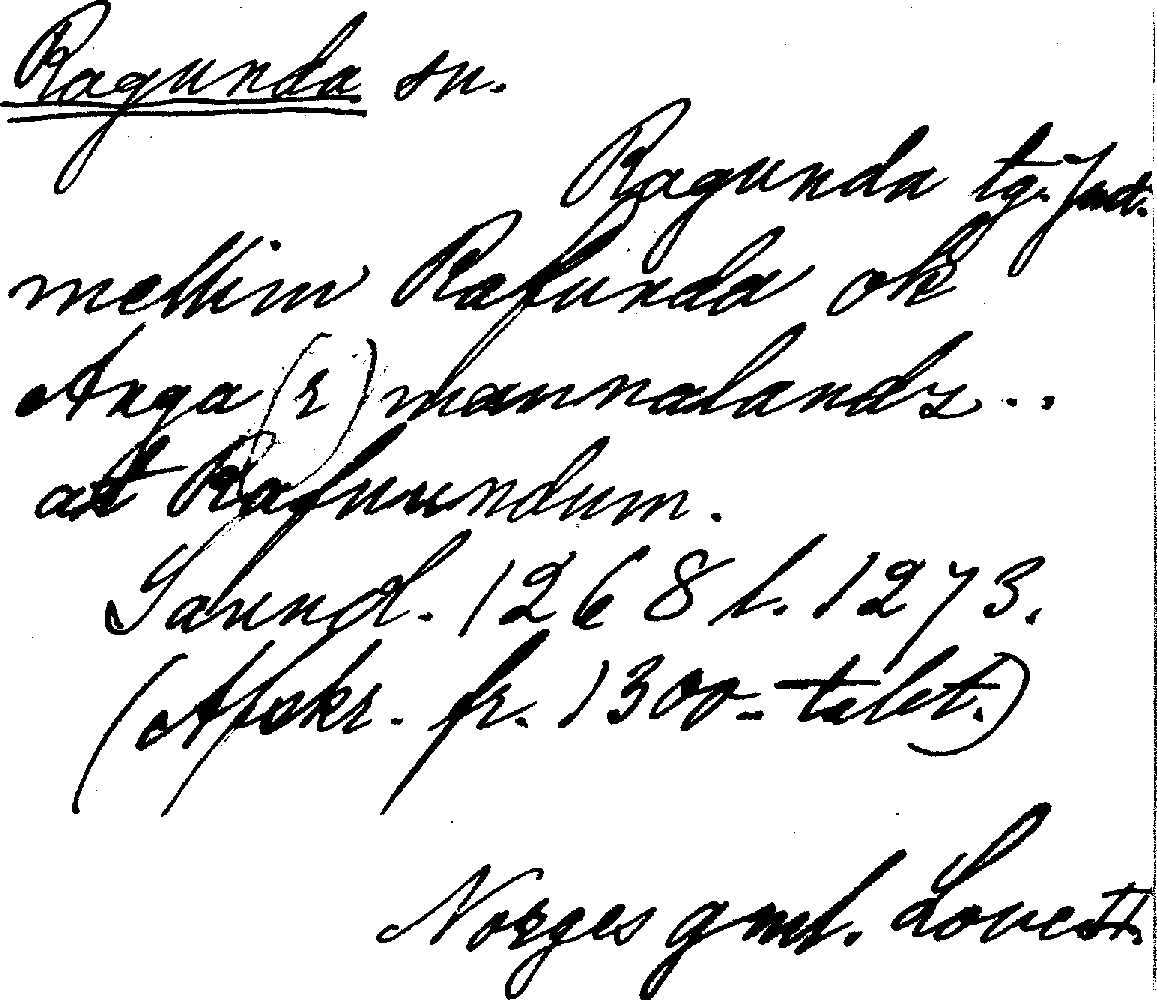 Ragunda sn.
Ragunda tg. Jmt.
mellim Rafunda ok
Anga(r)mannalands..
at Rafuundum.
Saml. 1268 l. 1273.
(Afskr. fr. 1300-talet.)
Norges gml. Love II,